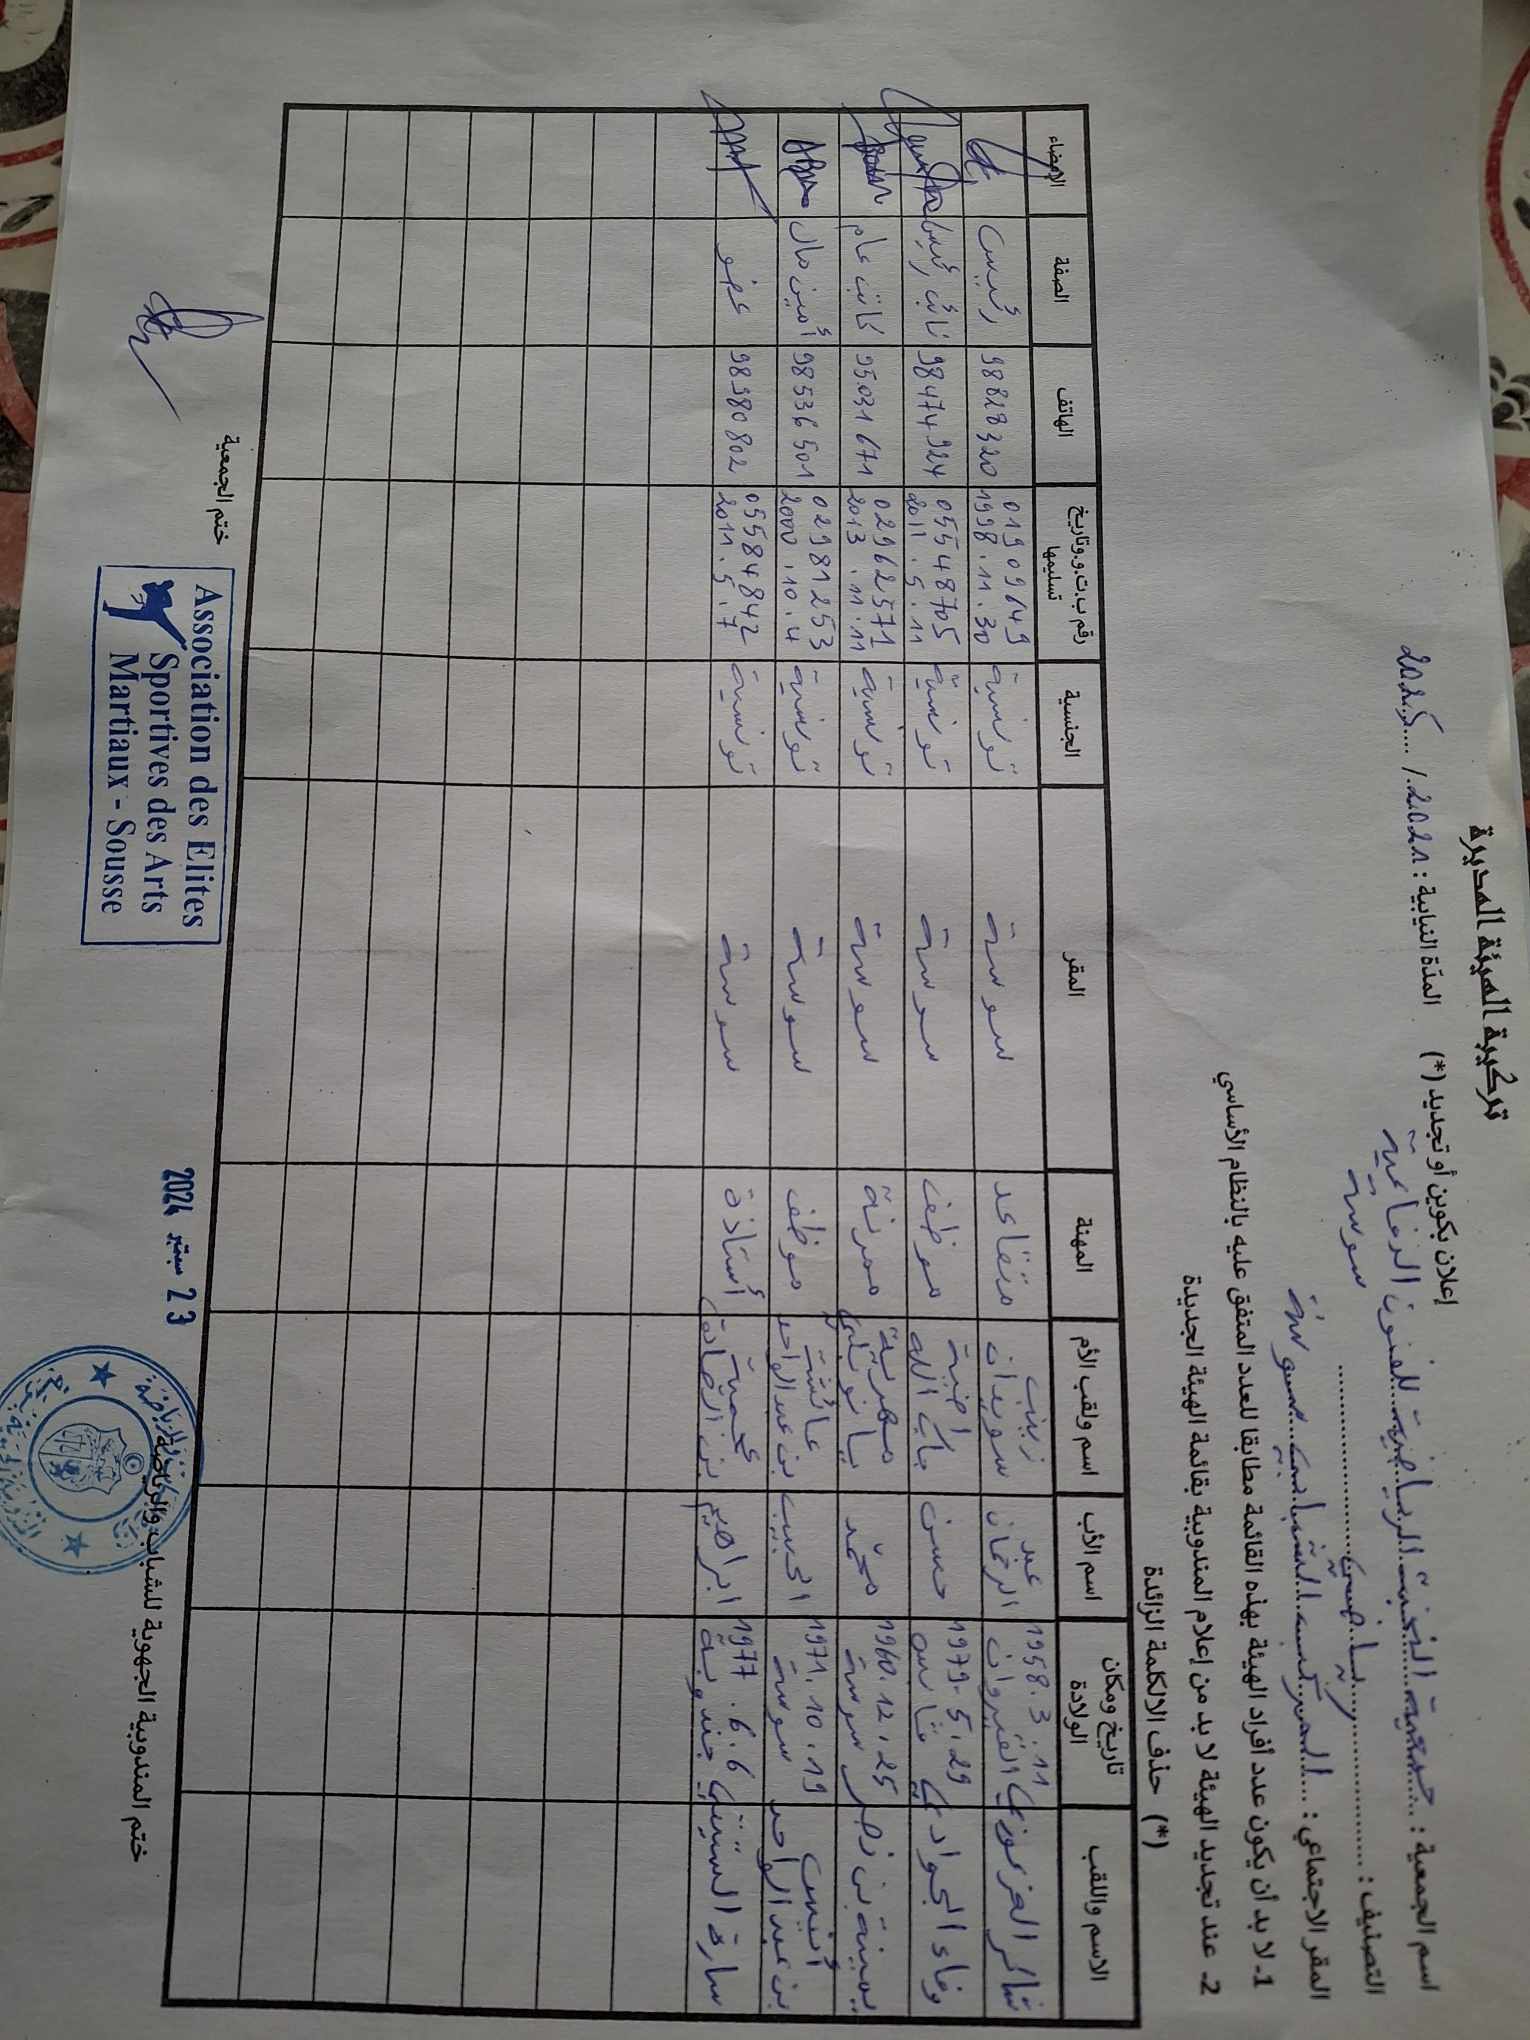 تركيبة الهيئة المديرة
إعلان بكوين أو تجديد (*) المدّة النيابية : 2021 / 2025
اسم الجمعية : جمعية النخب الرياضية للفنون الدفاعية سوسة
التصنيف : رياضية
المقر الاجتماعي : المركب الشبابي سوسة
1- لا بد أن يكون عدد أفراد الهيئة بهذه القائمة مطابقا للعدد المتفق عليه بالنظام الأساسي
2- عند تجديد الهيئة لا بد من إعلام المندوبية بقائمة الهيئة الجديدة
(*) حذف الالكلمة الزائدة
الاسم واللقب تاريخ ومكان الولادة اسم الأب اسم ولقب الأم المهنة المقر الجنسية رقم ب.ت.و.وتاريخ تسليمها الهاتف الصفة الإمضاء
شاكر العزعوزي 1958.3.11 القيروان عبد الرحمان زينب سويدان متقاعد سوسة تونسية 01909649 1998.11.30 98828320 رئيس
وفاء الجوادي 1979.5.29 حسن راضية جاب الله موظف سوسة تونسية 05548705 2011.5.11 98474924 نائب رئيس
يمينة بن نصر 1960.12.25 سوسة محمد مهرية ممرنة سوسة تونسية 02962571 2013.11.11 95031671 كاتب عام
أنيس بن عبد الواحد 1971.10.19 سوسة الحبيب عائشة بن عبد الواحد موظف سوسة تونسية 02981253 2000.10.4 98536501 أمين مال
سارة السبتي 1977.6.6 جندوبة ابراهيم بن أستاذة سوسة تونسية 05584842 2011.5.7 98380802 عضو
ختم المندوبية الجهوية للشباب والرياضة
23 سبتمبر 2024
ختم الجمعية
Association des Elites
Sportives des Arts
Martiaux - Sousse